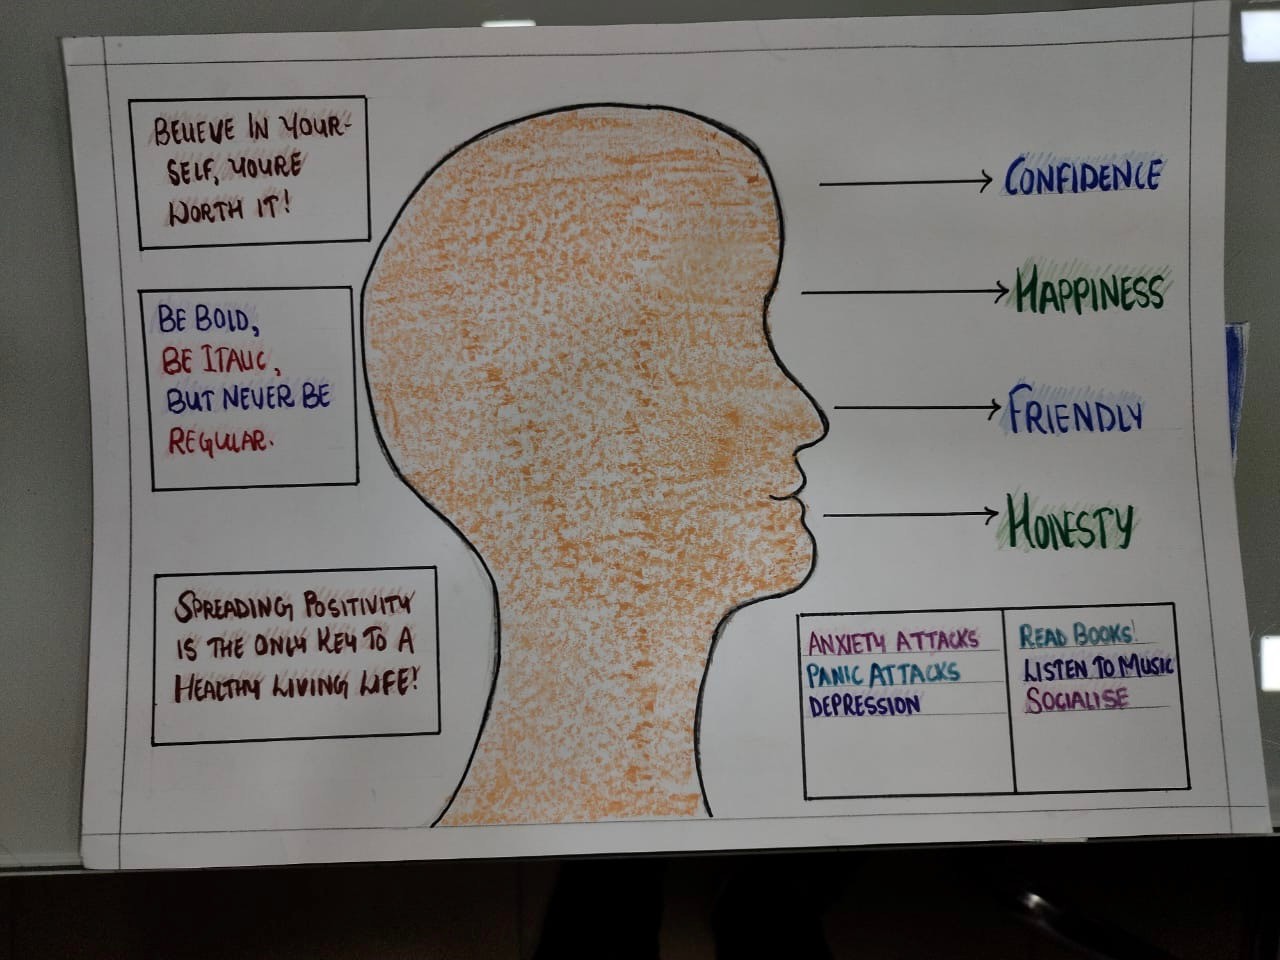 BELIEVE IN YOUR-
SELF, YOURE
WORTH IT!
BE BOLD,
BE ITALIC,
BUT NEVER BE
REGULAR.
SPREADING POSITIVITY
IS THE ONLY KEY TO A
HEALTHY LIVING LIFE!
CONFIDENCE
HAPPINESS
FRIENDLY
HONESTY
ANXIETY ATTACKS
PANIC ATTACKS
DEPRESSION
READ BOOKS!
LISTEN TO MUSIC
SOCIALISE